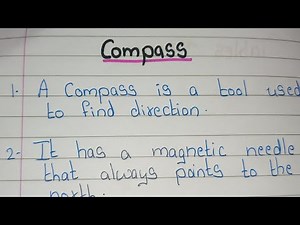 Compass
1- A Compass is a tool used
to find direction.
2- It has a magnetic needle
that always points to the
north.